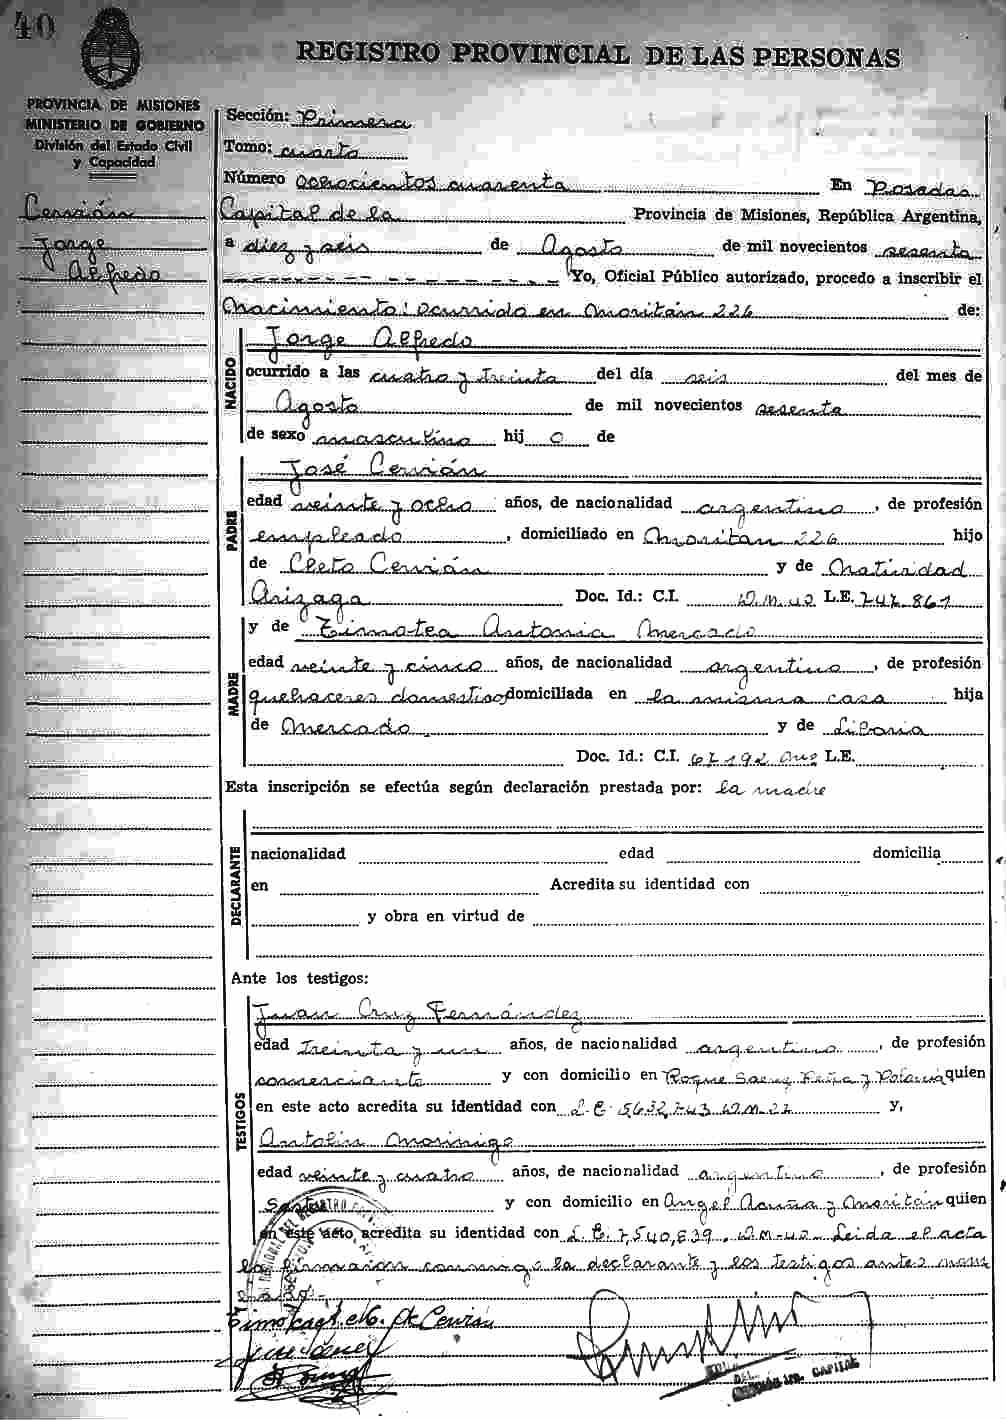 40
REGISTRO PROVINCIAL DE LAS PERSONAS
PROVINCIA DE MISIONES
MINISTERIO DE GOBIERNO
División del Estado Civil
y Capacidad
Cerrión
Jorge
Alfredo
Sección: Primera
Tomo: cuarto
Número ochocientos cuarenta En Posadas
Capital de la Provincia de Misiones, República Argentina,
a diez y seis de Agosto de mil novecientos sesenta
Yo, Oficial Público autorizado, procedo a inscribir el
Nacimiento: ocurrido en Moritán 226 de:
NACIDO
Jorge Alfredo
ocurrido a las cuatro y treinta del día seis del mes de
Agosto de mil novecientos sesenta
de sexo masculino hij o de
PADRE
José Cerrión
edad veinte y ocho años, de nacionalidad argentino, de profesión
empleado, domiciliado en Moritan 226 hijo
de Cleto Cerrión y de Natividad
Arizaga Doc. Id.: C.I. D.M. 40 L.E. 742.861
MADRE
y de Timotea Antonia Mercado
edad veinte y cinco años, de nacionalidad argentino, de profesión
quehaceres domesticos domiciliada en la misma casa hija
de Mercado y de Liboria
Doc. Id.: C.I. 67192 L.E.
Esta inscripción se efectúa según declaración prestada por: la madre
DECLARANTE
nacionalidad edad domicilia
en Acredita su identidad con
y obra en virtud de
Ante los testigos:
TESTIGOS
Juan Cruz Fernández
edad Treinta y un años, de nacionalidad argentino, de profesión
comerciante y con domicilio en Roque Saenz Peña y Polonia quien
en este acto acredita su identidad con L.E. 5632743 D.M. 27 y,
Antolin Morinigo
edad veinte y cuatro años, de nacionalidad argentino, de profesión
Sastre y con domicilio en Angel Acuña y Moritán quien
en este acto acredita su identidad con L.E. 7,540,839. D.M. 40 Leida el acta
la firmaron conmigo la declarante y los testigos antes
CAPITAL